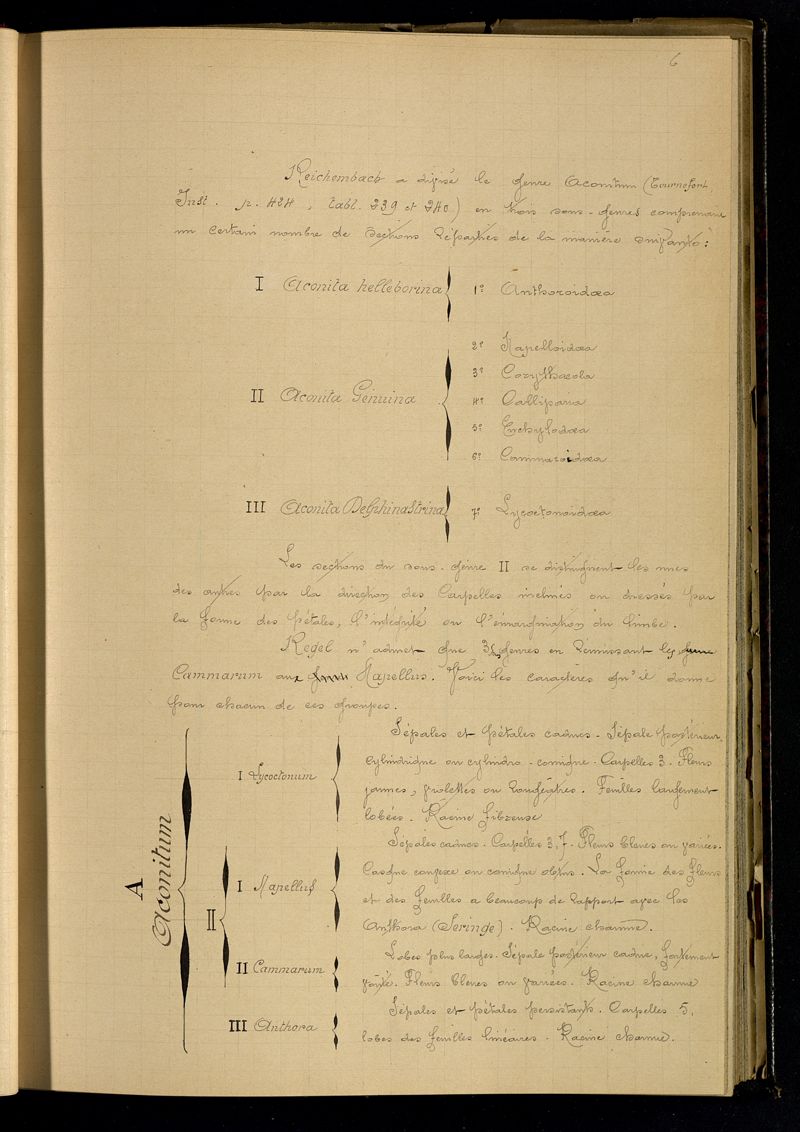 6
Reichembach a divisé le genre Aconitum (Tournefort
Inst. p. 424, tabl. 239 et 240) en trois sous-genres comprenant
un certain nombre de sections réparties de la manière suivante :
I Aconita helleborina
1º Anthoroidæa
II Aconita Genuina
2º Napelloidæa
3º Corythæola
4º Calliparia
5º Enchylodæa
6º Cammaroidæa
III Aconita Delphinastrina
7º Lycoctonoidæa
Les sections du sous-genre II se distinguent les unes
des autres par la direction des Carpelles inclinés ou dressés par
la forme des pétales, l'intégrité ou l'émargination du limbe.
Regel n'admet que 3 genres en réunissant les
Cammarum aux Napellus. Voici les caractères qu'il donne
pour chacun de ces groupes.
A
Aconitum
I Lycoctonum
Sépales et pétales caducs. Sépale postérieur
cylindrique ou cylindro-conique. Carpelles 3. Fleurs
jaunes, violettes ou rougeâtres. Feuilles largement
lobées. Racine fibreuse
II
I Napellus
Sépales caducs. Carpelles 3, 7. Fleurs bleues ou variées.
Casque convexe ou conique obtus. La forme des fleurs
et des feuilles a beaucoup de rapport avec les
Anthora (Seringe). Racine charnue.
II Cammarum
Lobes plus larges. Sépale postérieur caduc, fortement
voûté. Fleurs bleues ou variées. Racine charnue
III Anthora
Sépales et pétales persistants. Carpelles 5,
lobes des feuilles linéaires. Racine charnue.